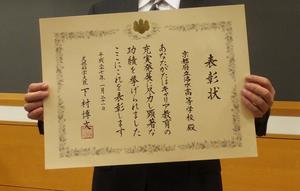 表彰状
京都府立洛水高等学校 殿
あなたがたはキャリア教育の
充実発展に尽力し顕著な
功績を挙げられました
ここにこれを表彰します
平成二十七年一月二十二日
文部科学大臣 下村博文